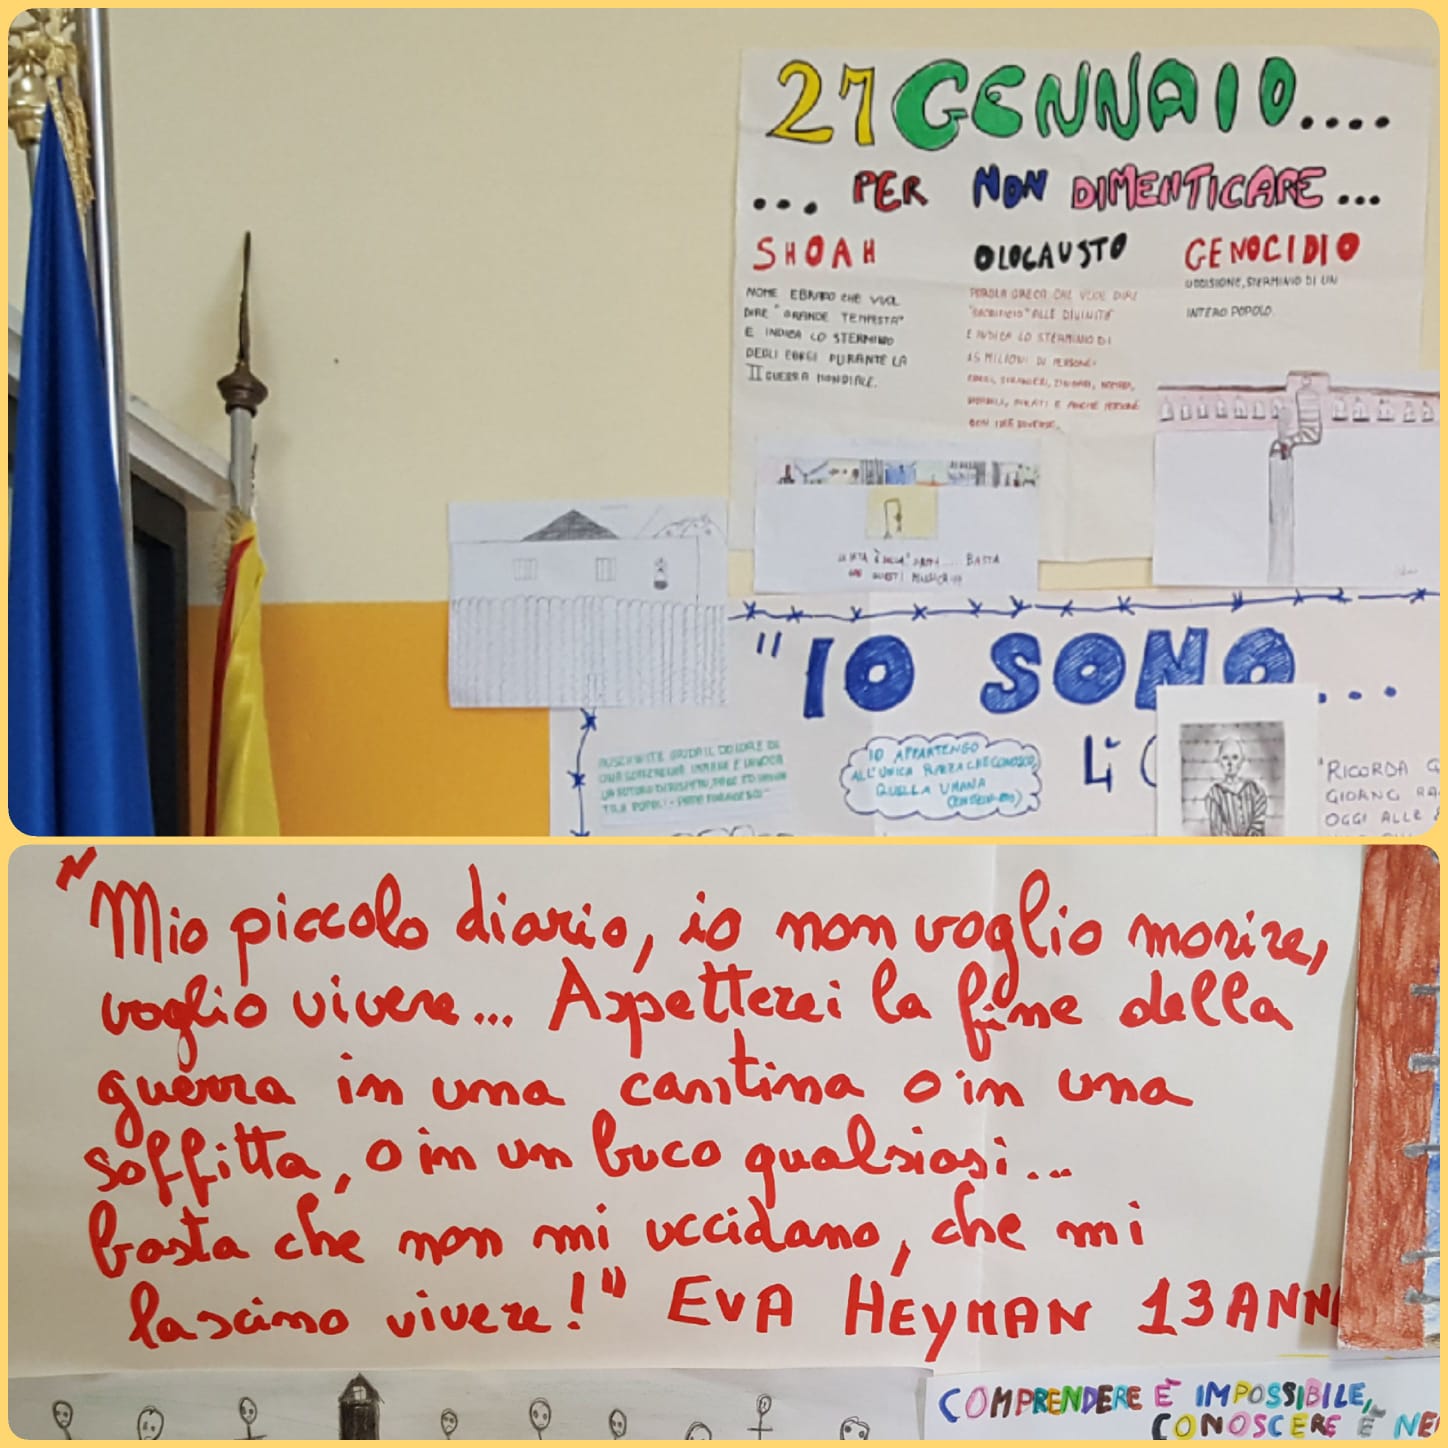 27 GENNAIO....
... PER NON DIMENTICARE...
SHOAH
NOME EBRAICO CHE VUOL
DIRE "GRANDE TEMPESTA"
E INDICA LO STERMINIO
DEGLI EBREI DURANTE LA
II GUERRA MONDIALE.
OLOCAUSTO
PAROLA GRECA CHE VUOL DIRE
"SACRIFICIO" ALLE DIVINITA'
E INDICA LO STERMINIO DI
15 MILIONI DI PERSONE:
EBREI, STRANIERI, ZINGARI,
E ANCHE PERSONE
CON IDEE DIVERSE.
GENOCIDIO
UCCISIONE, STERMINIO DI UN
INTERO POPOLO.
LA VITA È BELLA
BASTA
"IO SONO...
AUSCHWITZ GRIDA IL DOLORE DI
UNA SOFFERENZA IMMANE E INVOCA
UN FUTURO DI RISPETTO, PACE ED
TRA POPOLI - PAPA FRANCESCO"
IO APPARTENGO
ALL'UNICA RAZZA CHE CONOSCO,
QUELLA UMANA
(EINSTEIN)
"RICORDA
OGGI ALLE
"Mio piccolo diario, io non voglio morire,
voglio vivere... Aspetterei la fine della
guerra in una cantina o in una
soffitta, o in un buco qualsiasi...
basta che non mi uccidano, che mi
lascino vivere!" EVA HEYMAN 13 ANNI
COMPRENDERE È IMPOSSIBILE,
CONOSCERE È NE